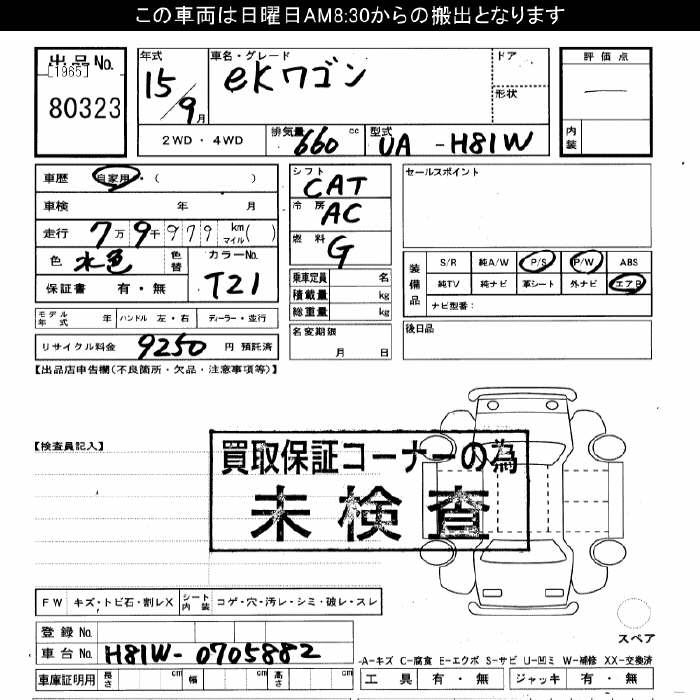 この車両は日曜日AM8:30からの搬出となります
出品No.
[1965]
80323
年式
15/9月
車名・グレード
eKワゴン
ドア
形状
評価点
内装
2WD・4WD
排気量 660 cc
型式 UA-H81W
車歴 自家用・( )
車検 年 月
走行 7万9千979 km マイル( )
色 水色 色替
カラーNo. T21
保証書 有・無
シフト CAT
冷房 AC
燃料 G
乗車定員 名
積載量 kg
総重量 kg
名変期限 月 日
セールスポイント
装備品
S/R 純A/W P/S P/W ABS
純TV 純ナビ 革シート 外ナビ エアB
ナビ型番:
後日品
モデル年式 年 ハンドル 左・右 ディーラー・並行
リサイクル料金 9250 円 預託済
【出品店申告欄(不良箇所・欠品・注意事項等)】
【検査員記入】
買取保証コーナーの為
未検査
FW キズ・トビ石・割レX シート内装 コゲ・穴・汚レ・シミ・破レ・スレ
スペア
登録No.
車台No. H81W-0705882
車庫証明用 長さ cm 幅 cm 高さ cm
-A-キズ C-腐食 E-エクボ S-サビ U-凹ミ W-補修 XX-交換済
工具 有・無 ジャッキ 有・無